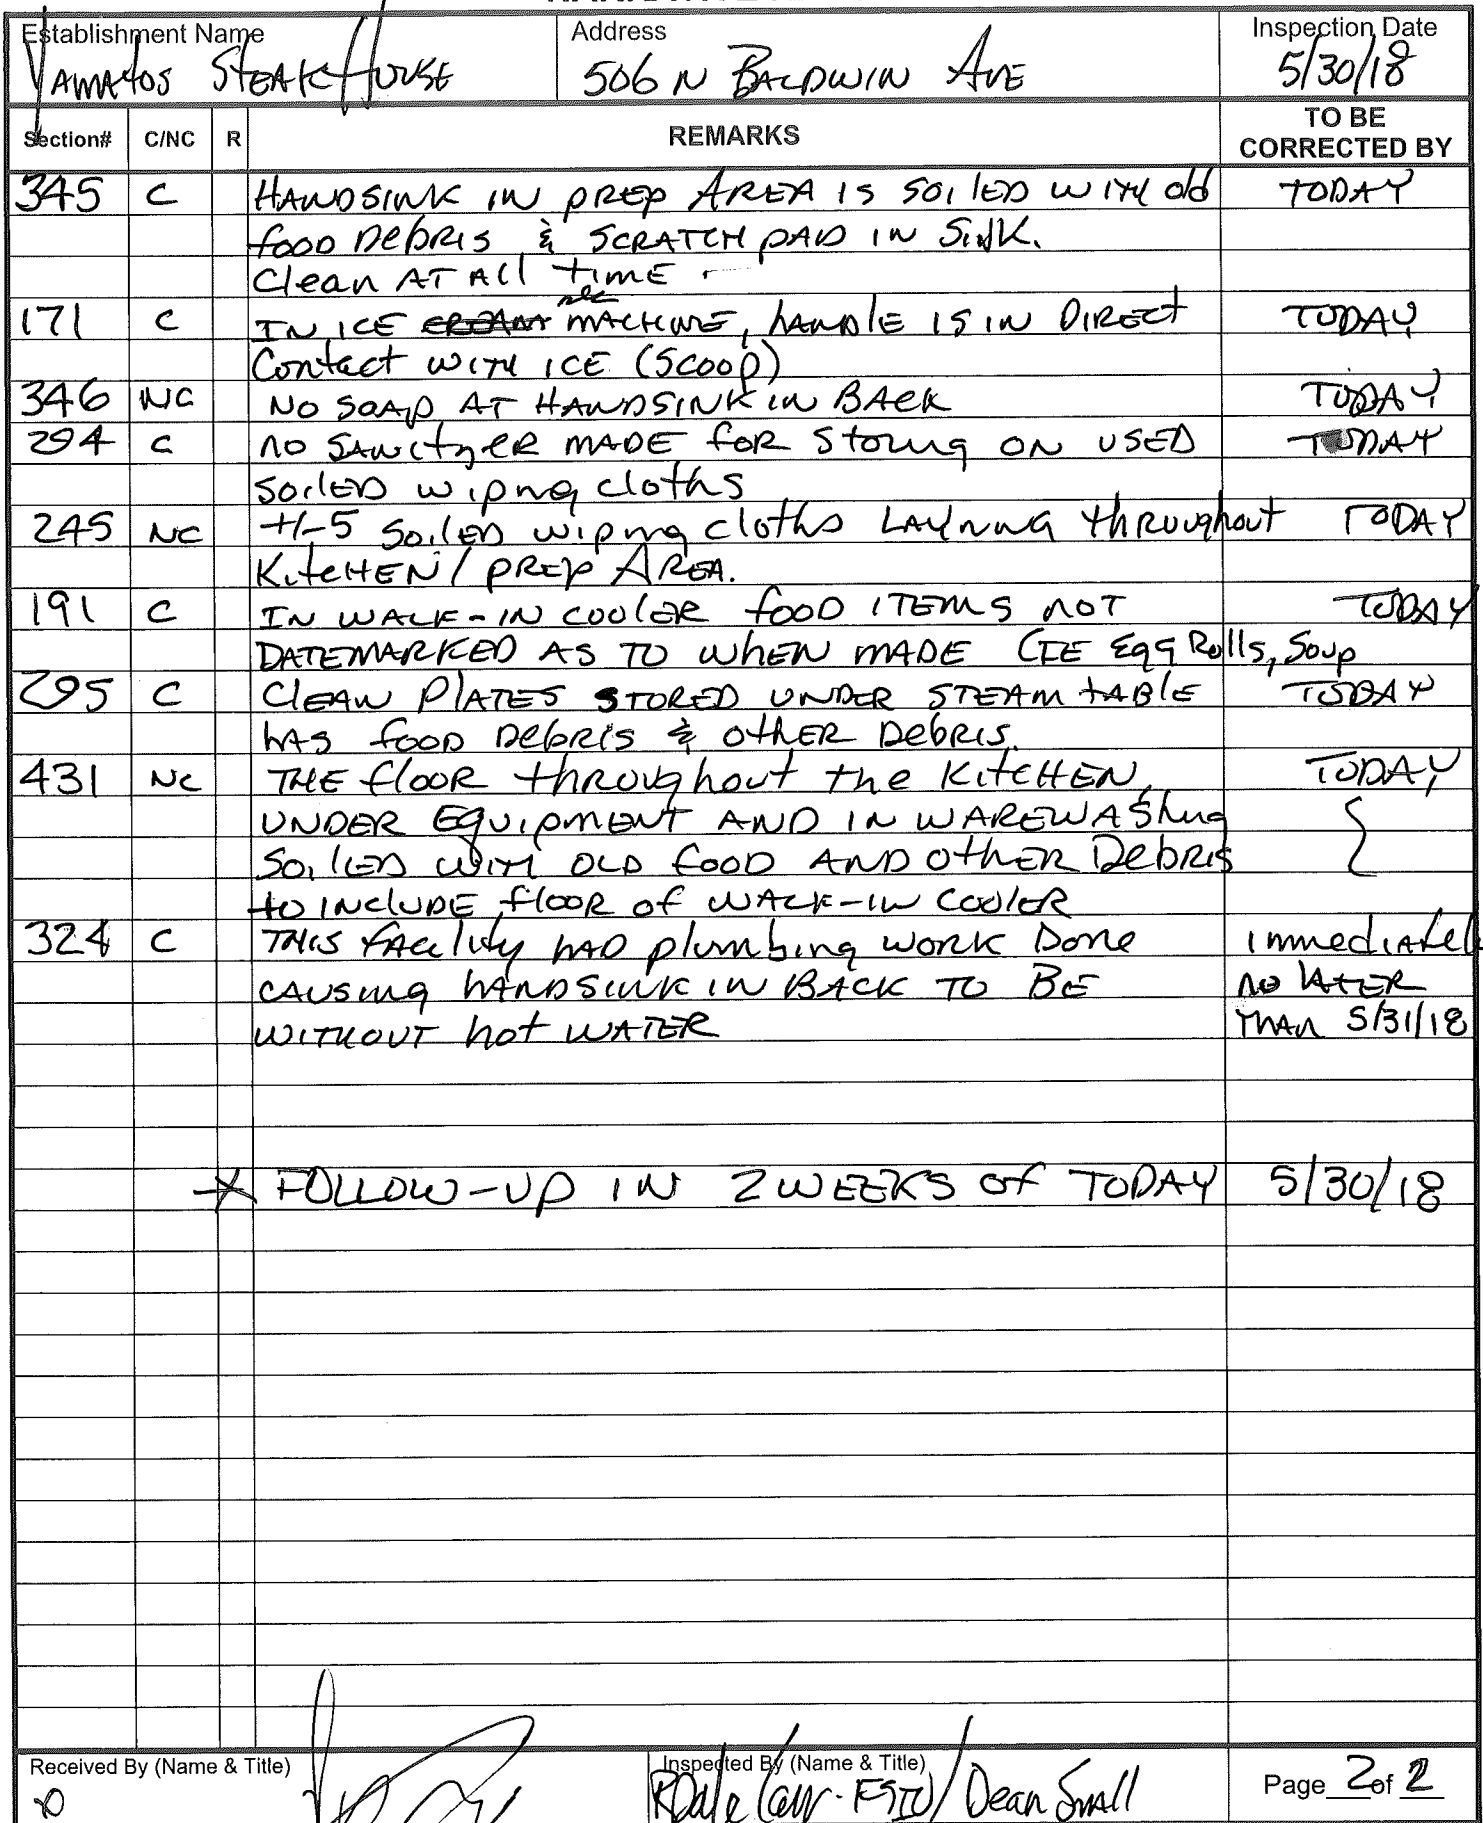 Establishment Name Address Inspection Date
YAMATOS STEAKHOUSE 506 N BALDWIN AVE 5/30/18
Section# C/NC R REMARKS TO BE CORRECTED BY
345 C HANDSINK IN PREP AREA IS SOILED WITH old TODAY
food DEBRIS & SCRATCH PAD IN SINK.
Clean AT All TIME
171 C IN ICE MACHINE, HANDLE IS IN DIRECT TODAY
Contact WITH ICE (SCOOP)
346 NC NO SOAP AT HANDSINK IN BACK TODAY
294 C NO SANITZER MADE FOR STORING ON USED TODAY
SOILED WIPING CLOTHS
245 NC +/-5 SOILED WIPING CLOTHS LAYNING THROUGHOUT TODAY
KITCHEN/PREP AREA.
191 C IN WALK-IN COOLER FOOD ITEMS NOT TODAY
DATEMARKED AS TO WHEN MADE (IE Egg Rolls, Soup
295 C CLEAN PLATES STORED UNDER STEAM TABLE TODAY
HAS FOOD DEBRIS & OTHER DEBRIS.
431 NC THE FLOOR THROUGHOUT THE KITCHEN, TODAY
UNDER EQUIPMENT AND IN WAREWASHING
SOILED WITH OLD FOOD AND OTHER DEBRIS
TO INCLUDE FLOOR OF WALK-IN COOLER
324 C THIS FACILITY HAD PLUMBING WORK DONE immediately
CAUSING HANDSINK IN BACK TO BE NO LATER
WITHOUT HOT WATER THAN 5/31/18
* FOLLOW-UP IN 2 WEEKS OF TODAY 5/30/18
Received By (Name & Title) Inspected By (Name & Title) Page 2 of 2
Dean Small